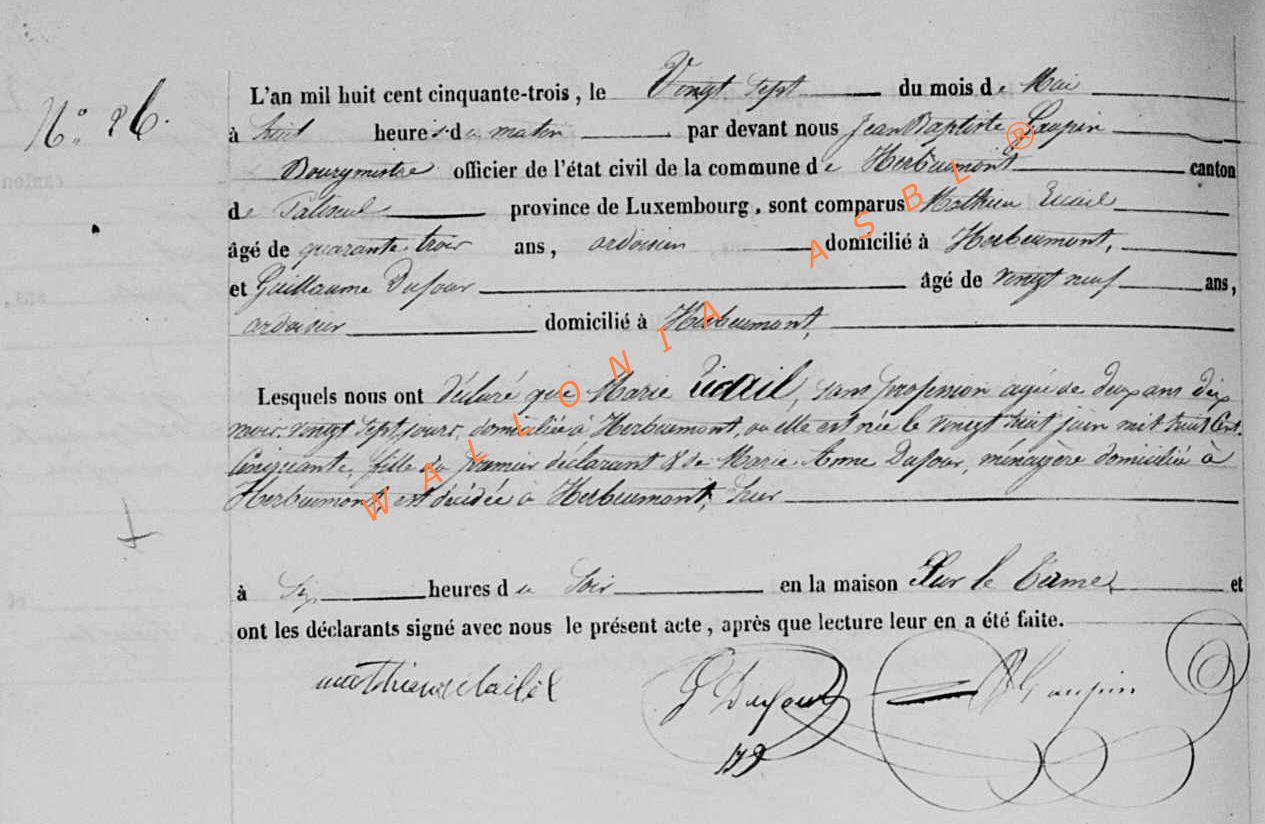 N.° 26.
L'an mil huit cent cinquante-trois, le Vingt Sept du mois de Mai
à huit heures du matin par devant nous Jean Baptiste Gaupin
Bourgmestre officier de l'état civil de la commune de Herbeumont canton
de Paliseul province de Luxembourg, sont comparus Mathieu
âgé de quarante trois ans, ardoisier domicilié à Herbeumont,
et Guillaume Dufour âgé de vingt neuf ans,
ardoisier domicilié à Herbeumont,
Lesquels nous ont déclaré que Marie sans profession agée de deux ans dix
mois vingt sept jours, domiciliée à Herbeumont, ou elle est née le vingt huit juin mil huit Cent
Cinquante, fille du premier déclarant & de Marie Anne Dufour, ménagère domiciliée à
Herbeumont, est décédée à Herbeumont, hier
à heures du Soir en la maison Sur le Terme et
ont les déclarants signé avec nous le présent acte, après que lecture leur en a été faite.
G Dufour
Gaupin
WALLONIA ASBL ®